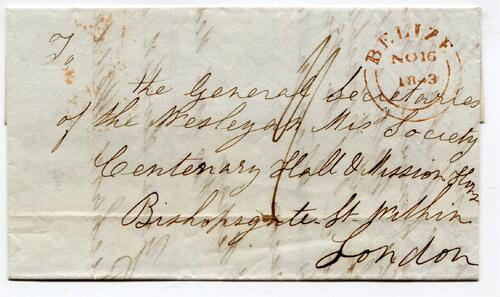 To
BELIZE
NO 16
1843
the General Secretaries
of the Wesleyan Mis. Society
Centenary Hall & Mission Hous
Bishopsgate St. Within
London